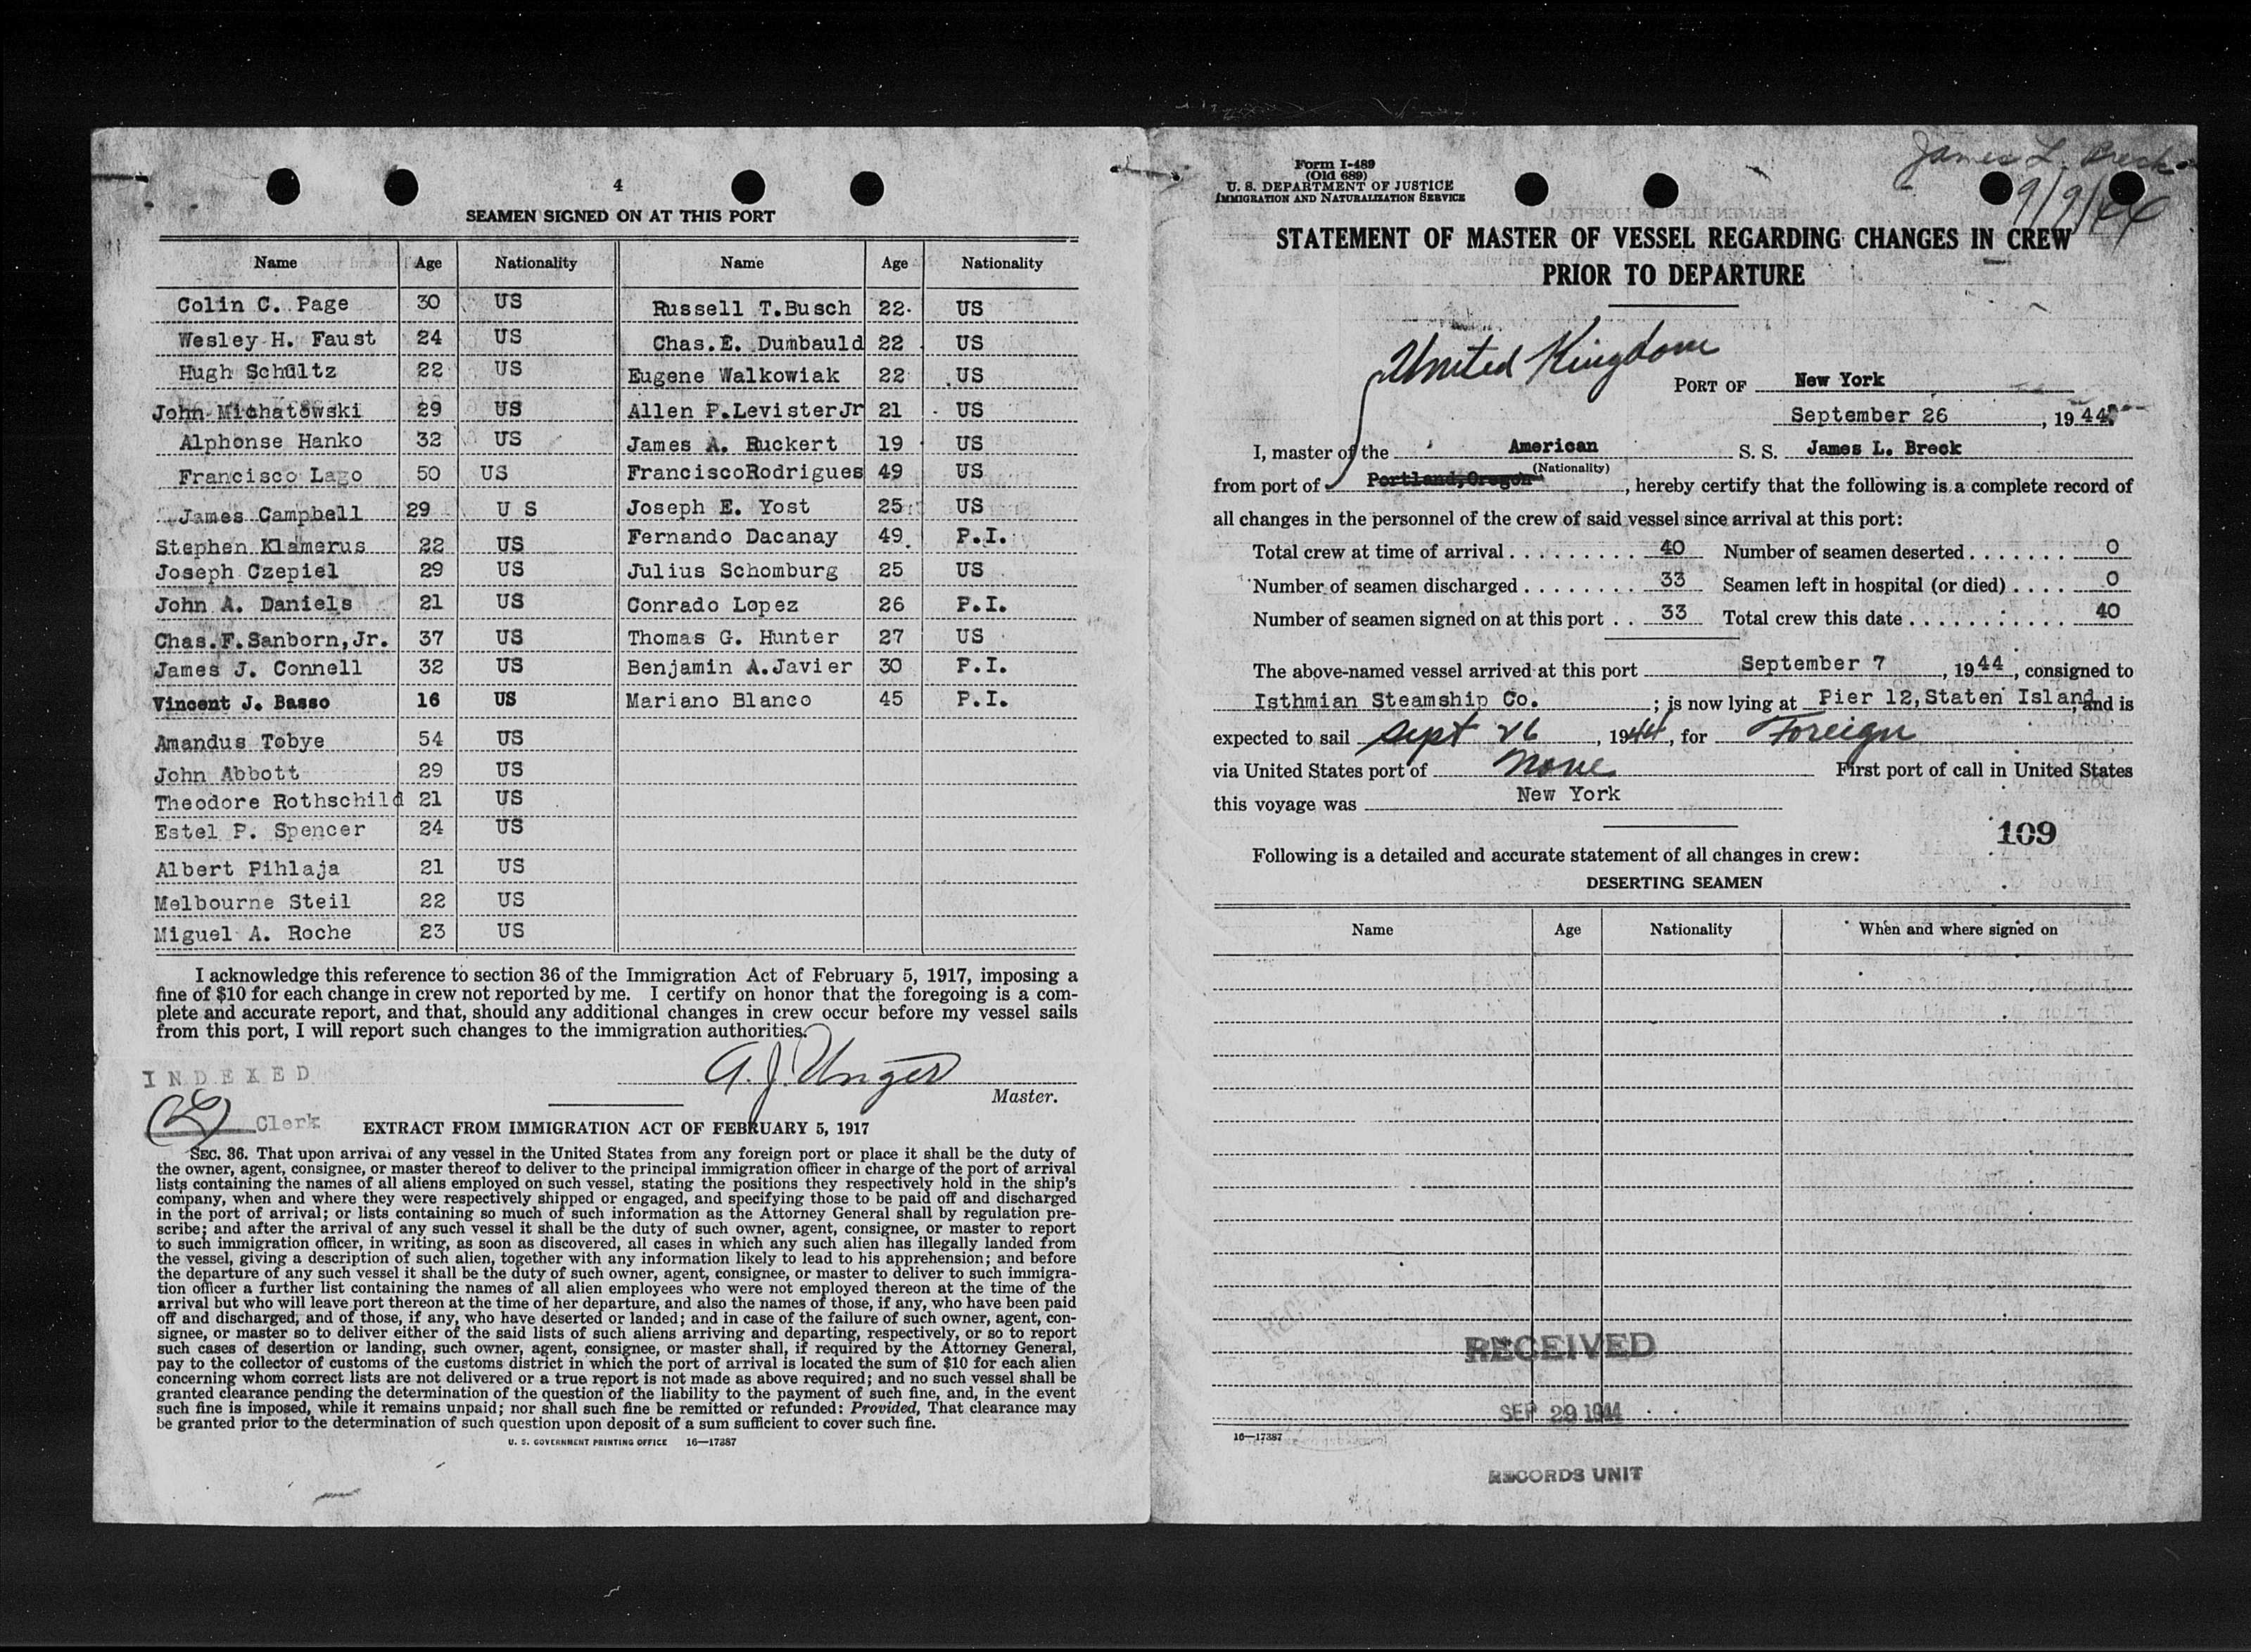 4
SEAMEN SIGNED ON AT THIS PORT
Name Age Nationality Name Age Nationality
Colin C. Page 30 US Russell T. Busch 22 US
Wesley H. Faust 24 US Chas. E. Dumbauld 22 US
Hugh Schultz 22 US Eugene Walkowiak 22 US
John Michatowski 29 US Allen P. Levister Jr 21 US
Alphonse Hanko 32 US James A. Ruckert 19 US
Francisco Lago 50 US Francisco Rodrigues 49 US
James Campbell 29 U S Joseph E. Yost 25 US
Stephen Klamerus 22 US Fernando Dacanay 49 P.I.
Joseph Czepiel 29 US Julius Schomburg 25 US
John A. Daniels 21 US Conrado Lopez 26 P.I.
Chas. F. Sanborn, Jr. 37 US Thomas G. Hunter 27 US
James J. Connell 32 US Benjamin A. Javier 30 P.I.
Vincent J. Basso 16 US Mariano Blanco 45 P.I.
Amandus Tobye 54 US
John Abbott 29 US
Theodore Rothschild 21 US
Estel P. Spencer 24 US
Albert Pihlaja 21 US
Melbourne Steil 22 US
Miguel A. Roche 23 US
I acknowledge this reference to section 36 of the Immigration Act of February 5, 1917, imposing a
fine of $10 for each change in crew not reported by me. I certify on honor that the foregoing is a com-
plete and accurate report, and that, should any additional changes in crew occur before my vessel sails
from this port, I will report such changes to the immigration authorities.
A. J. Unger
Master.
INDEXED
(L) Clerk
EXTRACT FROM IMMIGRATION ACT OF FEBRUARY 5, 1917
SEC. 36. That upon arrival of any vessel in the United States from any foreign port or place it shall be the duty of
the owner, agent, consignee, or master thereof to deliver to the principal immigration officer in charge of the port of arrival
lists containing the names of all aliens employed on such vessel, stating the positions they respectively hold in the ship's
company, when and where they were respectively shipped or engaged, and specifying those to be paid off and discharged
in the port of arrival; or lists containing so much of such information as the Attorney General shall by regulation pre-
scribe; and after the arrival of any such vessel it shall be the duty of such owner, agent, consignee, or master to report
to such immigration officer, in writing, as soon as discovered, all cases in which any such alien has illegally landed from
the vessel, giving a description of such alien, together with any information likely to lead to his apprehension; and before
the departure of any such vessel it shall be the duty of such owner, agent, consignee, or master to deliver to such immigra-
tion officer a further list containing the names of all alien employees who were not employed thereon at the time of the
arrival but who will leave port thereon at the time of her departure, and also the names of those, if any, who have been paid
off and discharged, and of those, if any, who have deserted or landed; and in case of the failure of such owner, agent, con-
signee, or master so to deliver either of the said lists of such aliens arriving and departing, respectively, or so to report
such cases of desertion or landing, such owner, agent, consignee, or master shall, if required by the Attorney General,
pay to the collector of customs of the customs district in which the port of arrival is located the sum of $10 for each alien
concerning whom correct lists are not delivered or a true report is not made as above required; and no such vessel shall be
granted clearance pending the determination of the question of the liability to the payment of such fine, and, in the event
such fine is imposed, while it remains unpaid; nor shall such fine be remitted or refunded: Provided, That clearance may
be granted prior to the determination of such question upon deposit of a sum sufficient to cover such fine.
U. S. GOVERNMENT PRINTING OFFICE 16—17387
James L. Breck
9/9/44
Form I-489
(Old 689)
U. S. DEPARTMENT OF JUSTICE
IMMIGRATION AND NATURALIZATION SERVICE
STATEMENT OF MASTER OF VESSEL REGARDING CHANGES IN CREW
PRIOR TO DEPARTURE
United Kingdom
PORT OF New York
September 26, 1944
I, master of the American S. S. James L. Breck
(Nationality)
from port of Portland, Oregon, hereby certify that the following is a complete record of
all changes in the personnel of the crew of said vessel since arrival at this port:
Total crew at time of arrival . . . . . . . . . 40 Number of seamen deserted . . . . . . . 0
Number of seamen discharged . . . . . . . . 33 Seamen left in hospital (or died) . . . . 0
Number of seamen signed on at this port . . 33 Total crew this date . . . . . . . . . . . . 40
The above-named vessel arrived at this port September 7, 1944, consigned to
Isthmian Steamship Co. ; is now lying at Pier 12, Staten Island, and is
expected to sail Sept 26, 1944, for Foreign
via United States port of None First port of call in United States
this voyage was New York
109
Following is a detailed and accurate statement of all changes in crew:
DESERTING SEAMEN
Name Age Nationality When and where signed on
RECEIVED
SEP 29 1944
16—17387
RECORDS UNIT